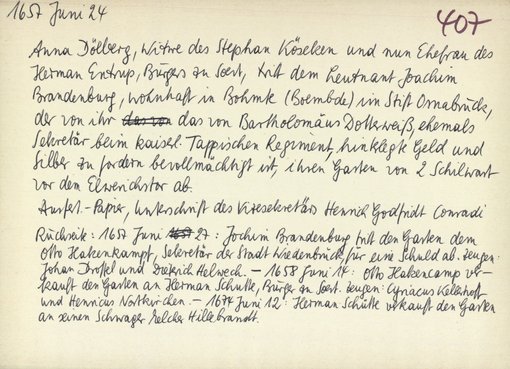 1657 Juni 24
407
Anna Dölberg, Witwe des Stephan Köseken und nun Ehefrau des
Herman Entrup, Bürgers zu Soest, tritt dem Leutnant Joachim
Brandenburg, wohnhaft in Bohmte (Boembde) im Stift Osnabrück,
der von ihr das von Bartholomäus Dotterweiß, ehemals
Sekretär beim kaiserl. Tappischen Regiment, hinterlegte Geld und
Silber zu fordern bevollmächtigt ist, ihren Garten von 2 Schilwart
vor dem Elwerichstor ab.
Ausfert.-Papier, Unterschrift des Vizesekretärs Henrich Godfridt Conradi
Rückseite: 1657 Juni 27: Jochim Brandenburg tritt den Garten dem
Otto Hakenkampf, Sekretär der Stadt Wiedenbrück, für eine Schuld ab. Zeugen:
Johan Drostel und Diederich Helwech. - 1658 Juni 14: Otto Hakencamp ver-
kauft den Garten an Herman Schutte, Bürger zu Soest. Zeugen: Cyriacus Kellerhoff
und Henricus Notkirchen. - 1674 Juni 12: Herman Schütte verkauft den Garten
an seinen Schwager Hillebrandt.